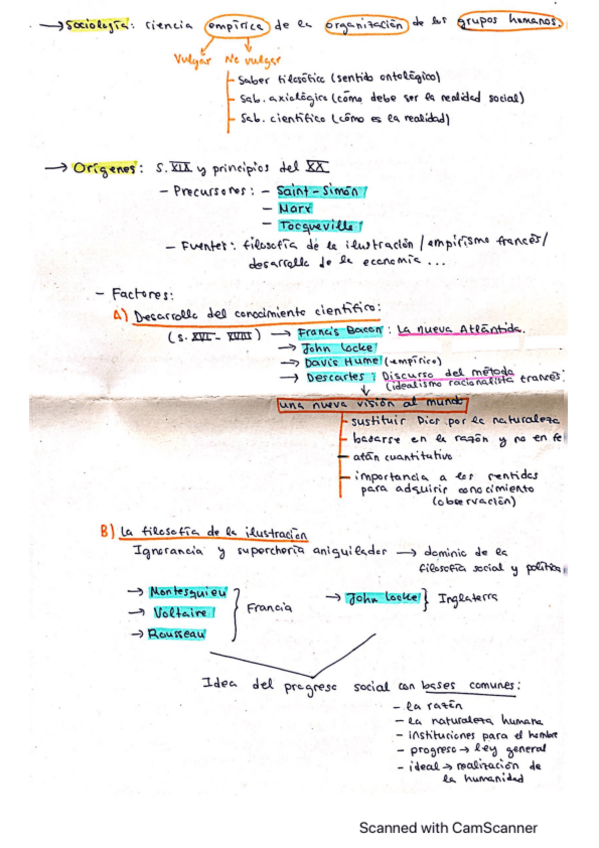 → Sociología: ciencia empírica de la organización de los grupos humanos.
Vulgar No vulgar
Saber filosófico (sentido ontológico)
Sab. axiológico (cómo debe ser la realidad social)
Sab. científico (cómo es la realidad)
→ Orígenes: S. XIX y principios del XX
- Precursores: - Saint-Simón
- Marx
- Tocqueville
- Fuentes: filosofía de la ilustración / empirismo francés /
desarrollo de la economía ...
- Factores:
A) Desarrollo del conocimiento científico:
(s. XVI - XVIII) → Francis Bacon: La nueva Atlántida.
→ John Locke
→ Davis Hume (empírico)
→ Descartes: Discurso del método
(idealismo racionalista francés)
una nueva visión al mundo
sustituir Dios por la naturaleza
basarse en la razón y no en fe
afán cuantitativo
importancia a los sentidos
para adquirir conocimiento
(observación)
B) La filosofía de la ilustración
Ignorancia y superchería aniquilador → dominio de la
filosofía social y política
→ Montesquieu
→ Voltaire
→ Rousseau
Francia
→ John Locke } Inglaterra
Idea del progreso social con bases comunes:
- la razón
- la naturaleza humana
- instituciones para el hombre
- progreso → ley general
- ideal → realización de
la humanidad
Scanned with CamScanner